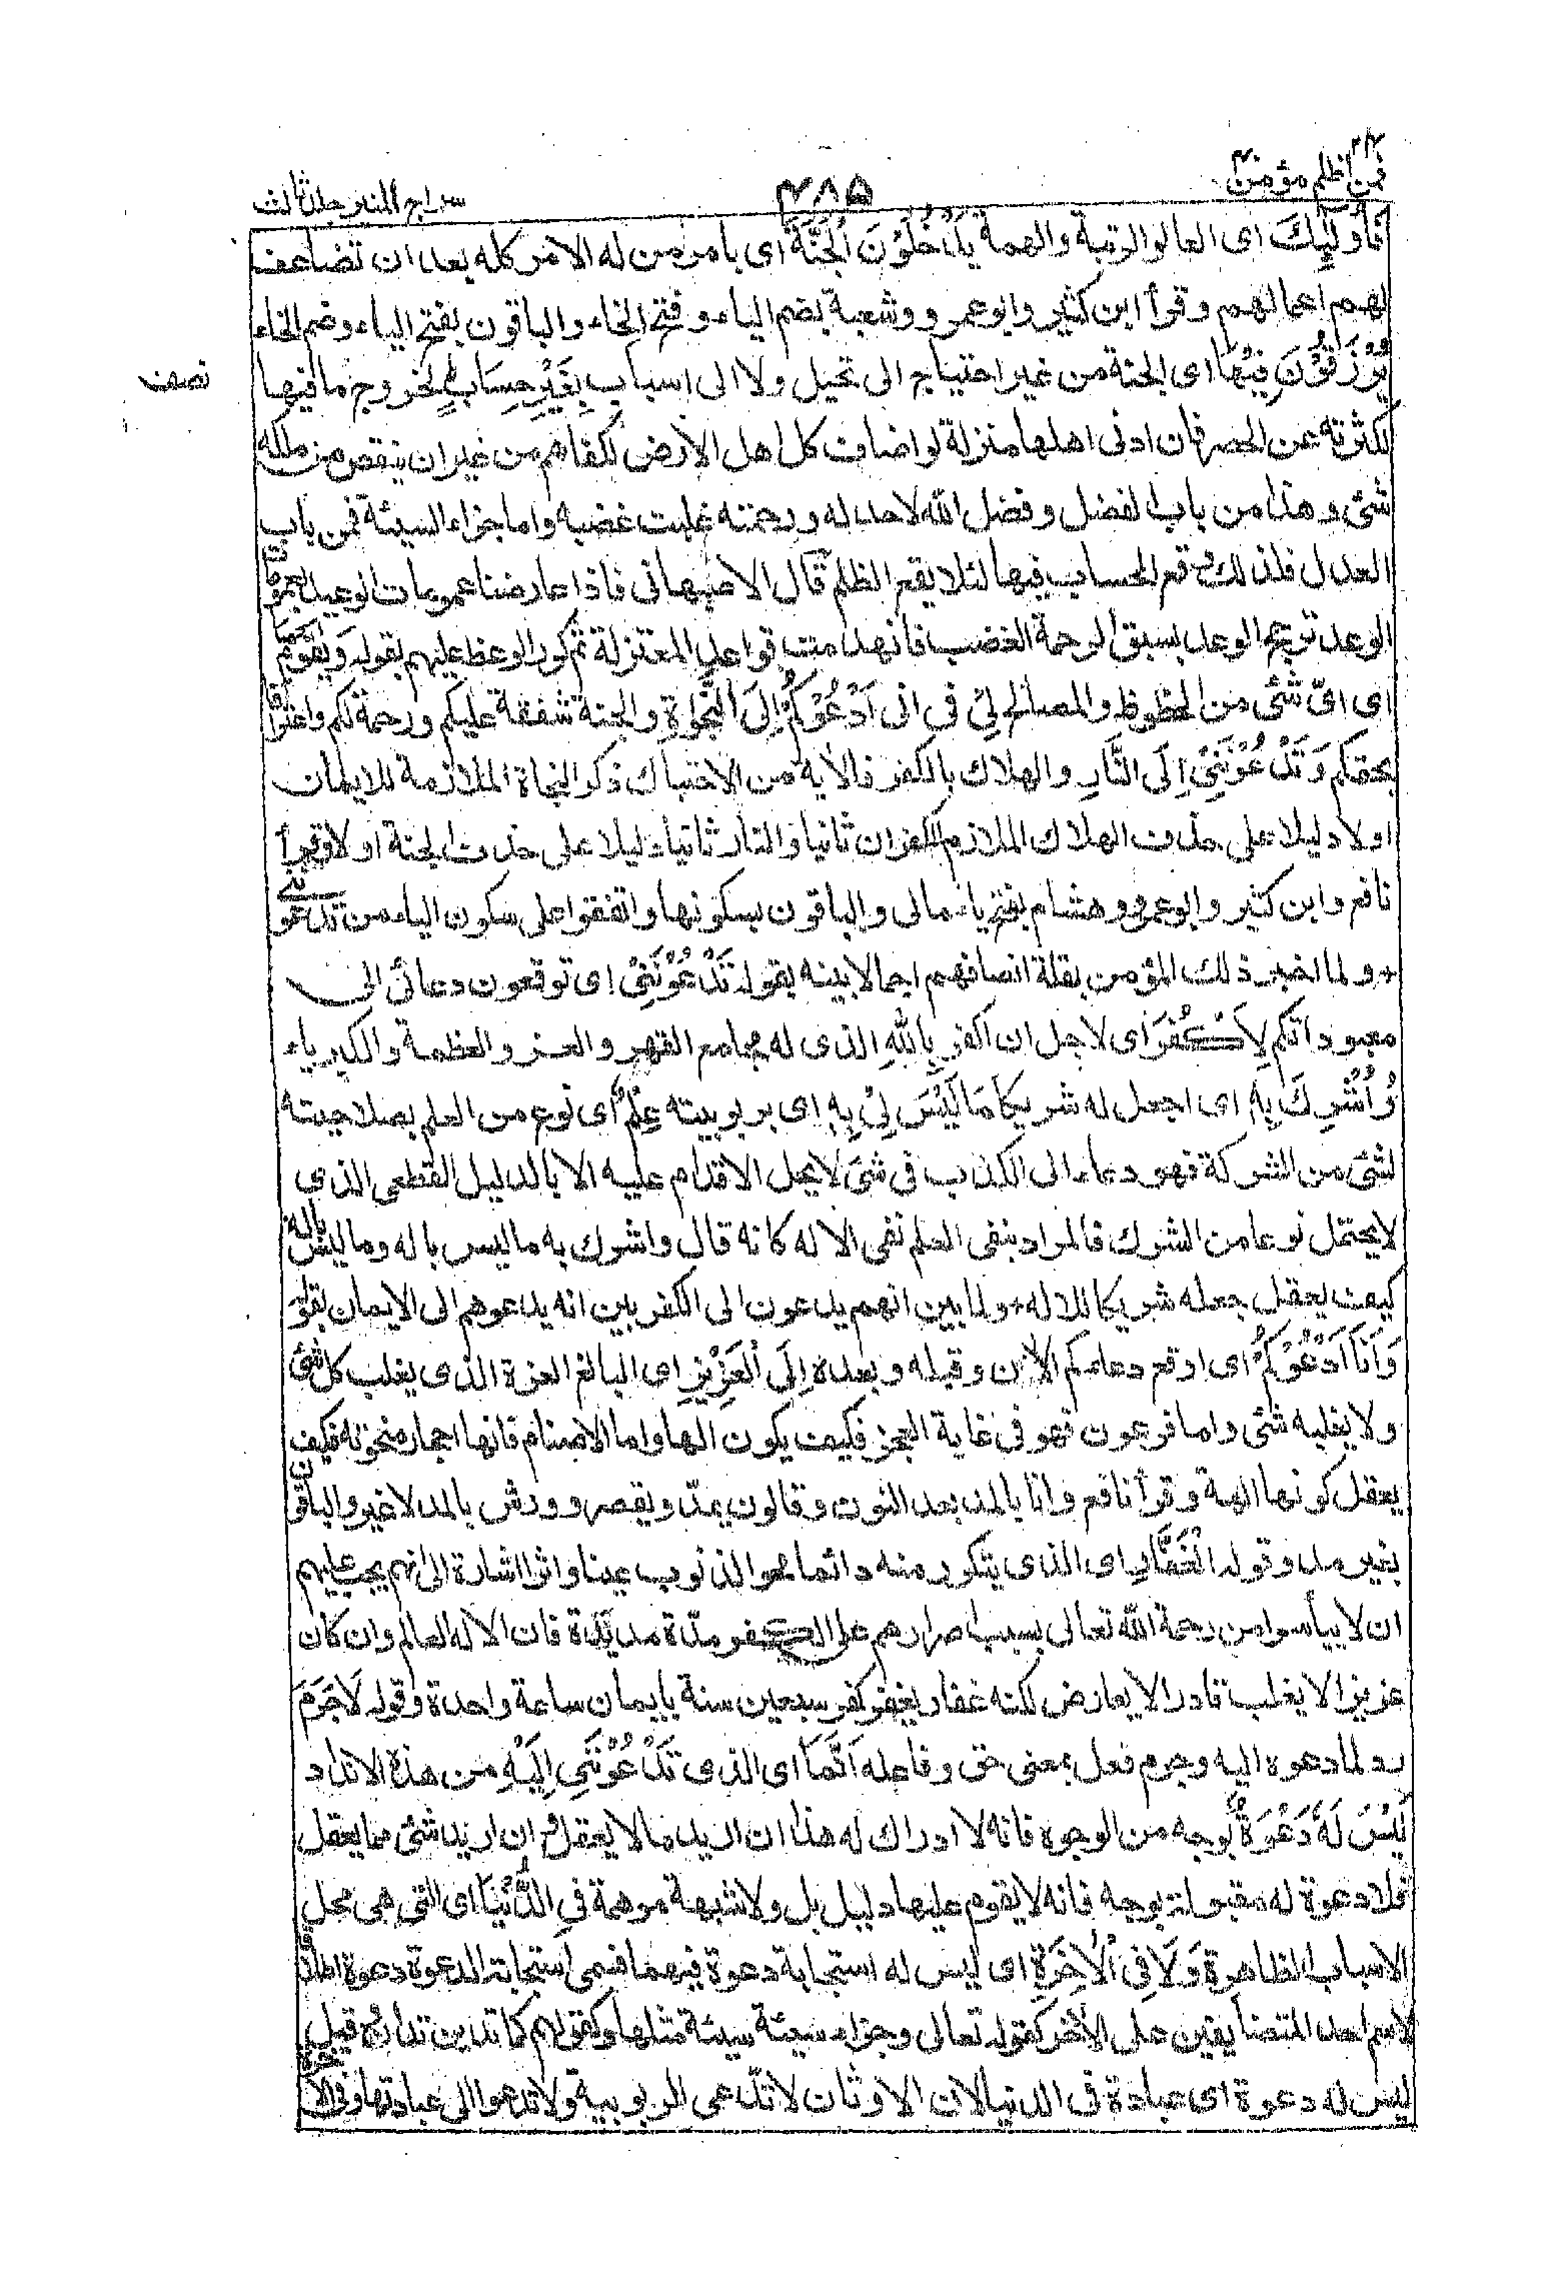 فمن اظلم ٢٤
مؤمن ٤٠
٤٨٥
سراج المنير جلد ثالث
فَأُولٰٓئِكَ اى العالو الرتبة والهمة يَدْخُلُوْنَ الْجَنَّةَ اى بامر من له الامر كله بعد ان تضاعف
لهم اعمالهم وقرأ ابن كثير وابو عمرو وشعبة بضم الياء وفتح الخاء والباقون بفتح الياء وضم الخاء
يُرْزَقُوْنَ فِيْهَا اى الجنة من غير احتياج الى تحيل ولا الى اسباب بِغَيْرِ حِسَابٍ لخروج ما فيها
نصف
لكثرته عن الحصر فان ادنى اهلها منزلة لو اضاف كل اهل الارض لكفاهم من غير ان ينقص من ملكه
شئ وهذا من باب الفضل وفضل الله لاحد له ورحمته غلبت غضبه واما جزاء السيئة فمن باب
العدل فلذلك وقع الحساب فيها لئلا يقع الظلم قال الاصبهانى فاذا عارضنا عمومات الوعيد بعمومات
الوعد ترجح الوعد بسبق الرحمة الغضب فانهدمت قواعد المعتزلة ثم كرر الوعظ عليهم بقوله وَيٰقَوْمِ مَا
اى اىّ شئ من الحظوظ والمصالح لِىْ فى انى اَدْعُوْكُمْ اِلَى النَّجٰوةِ والجنة شفقة عليكم ورحمة لكم واعترافا
بحقكم وَتَدْعُوْنَنِىْ اِلَى النَّارِ والهلاك بالكفر فالآية من الاحتباك ذكر النجاة الملازمة للايمان
اولا دليلا على حذف الهلاك الملازم للكفران ثانيا والنار ثانيا دليلا على حذف الجنة اولا وقرأ
نافع وابن كثير وابو عمرو وهشام بفتح ياء مالى والباقون بسكونها واتفقوا على سكون الياء من تدعوننى
+ ولما اخبر ذلك المؤمن بقلة انصافهم اجمالا بينه بقوله تَدْعُوْنَنِىْ اى توقعون دعائى الى
معبوداتكم لِاَكْفُرَ اى لاجل ان اكفر بِاللّٰهِ الذى له مجامع القهر والعز والعظمة والكبرياء
وَاُشْرِكَ بِهٖ اى اجعل له شريكا مَا لَيْسَ لِىْ بِهٖ اى بربوبيته عِلْمٌ اى نوع من العلم بصلاحيته
لشئ من الشركة فهو دعاء الى الكذب فى شئ لا يحل الاقدام عليه الا بالدليل القطعى الذى
لا يحتمل نوعا من الشرك فالمراد بنفى العلم نفى الاله كانه قال واشرك به ما ليس باله وما ليس باله
كيف يعقل جعله شريكا للاله + ولما بين انهم يدعون الى الكفر بين انه يدعوهم الى الايمان بقوله
وَاَنَا اَدْعُوْكُمْ اى اوقع دعاءكم الآن وقبله وبعده اِلَى الْعَزِيْزِ اى البالغ العزة الذى يغلب كل شئ
ولا يغلبه شئ واما فرعون فهو فى غاية العجز فكيف يكون الها واما الاصنام فانها احجار منحوتة فكيف
يعقل كونها الهة وقرأ نافع وانا بالمد بعد النون وقالون يمد ويقصر وورش بالمد لا غير والباقون
بغير مد وقوله الْغَفَّارِ اى الذى يتكرر منه دائما محو الذنوب عينا واثرا اشارة الى انهم يجب عليهم
ان لا ييأسوا من رحمة الله تعالى بسبب اصرارهم على الكفر مدّة مديدة فان الاله العالم وان كان
عزيزا لا يغلب قادرا لا يعارض لكنه غفار يغفر كفر سبعين سنة بايمان ساعة واحدة وقوله لَاجَرَمَ
رد لما دعوه اليه وجرم فعل بمعنى حق وفاعله اَنَّمَا اى الذى تَدْعُوْنَنِىْ اِلَيْهِ من هذه الانداد
لَيْسَ لَهٗ دَعْوَةٌ بوجه من الوجوه فانه لا ادراك له هذا ان اريد ما لا يعقل وان اريد شئ مما يعقل
فلا دعوة له مقبولة بوجه فانه لا يقوم عليها دليل بل ولا شبهة موهمة فِى الدُّنْيَا اى التى هى محل
الاسباب الظاهرة وَلَا فِى الْاٰخِرَةِ اى ليس له استجابة دعوة فيهما فسمى استجابة الدعوة دعوة اطلاقا
لاسم احد المتضايفين على الآخر كقوله تعالى وجزاء سيئة سيئة مثلها وكقولهم كما تدين تدان وقيل
ليس له دعوة اى عبادة فى الدنيا لان الاوثان لا تدّعى الربوبية ولا تدعوا الى عبادتها وفى الآخرة